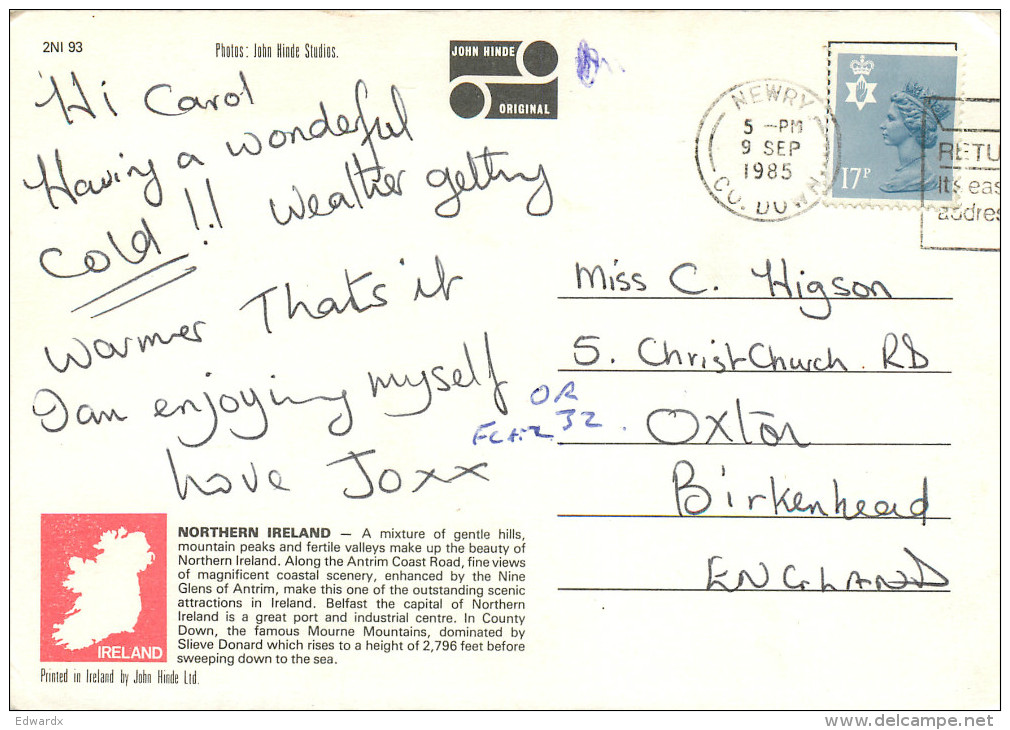 2NI 93
Photos: John Hinde Studios.
JOHN HINDE
ORIGINAL
Hi Carol
Having a wonderful
cold!! Weather getting
warmer Thats it
I am enjoying myself
Love Joxx
NEWRY
5 -PM
9 SEP
1985
CO. DOWN
17P
RETU
It's eas
addres
Miss C. Higson
5. ChristChurch. RD
Oxton
Birkenhead
ENGLAND
OR
32.
NORTHERN IRELAND — A mixture of gentle hills,
mountain peaks and fertile valleys make up the beauty of
Northern Ireland. Along the Antrim Coast Road, fine views
of magnificent coastal scenery, enhanced by the Nine
Glens of Antrim, make this one of the outstanding scenic
attractions in Ireland. Belfast the capital of Northern
Ireland is a great port and industrial centre. In County
Down, the famous Mourne Mountains, dominated by
Slieve Donard which rises to a height of 2,796 feet before
sweeping down to the sea.
IRELAND
Printed in Ireland by John Hinde Ltd.
Edwardx
www.delcampe.net